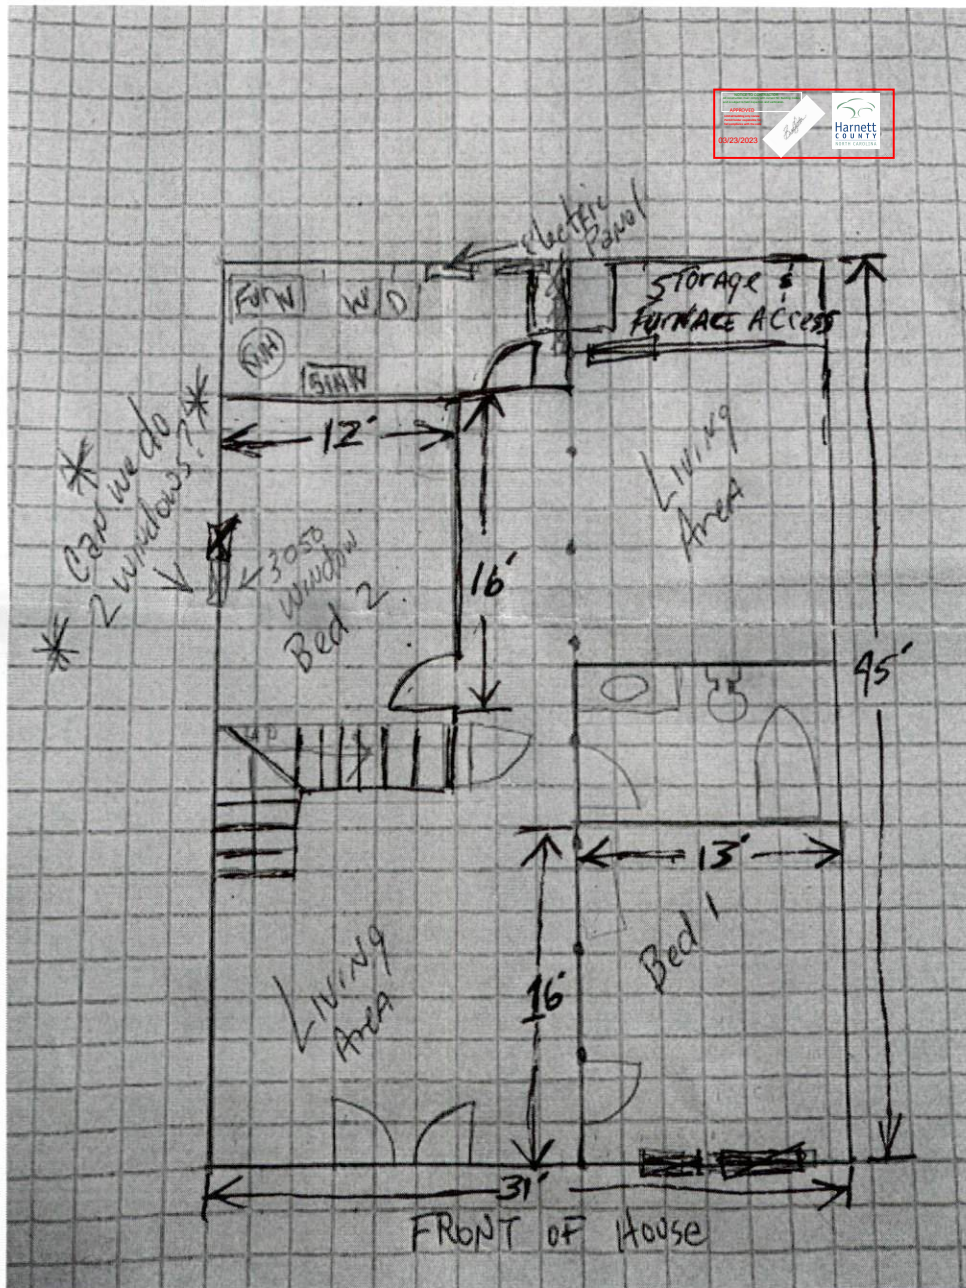 APPROVED
03/23/2023
Harnett
COUNTY
NORTH CAROLINA
Electric
Panel
Furn
W
D
WH
SINK
Storage &
Furnace Access
12'
* Can we do *
* 2 windows??
3050
window
Bed 2
16'
Living
Area
45'
UP
13'
Bed 1
16'
Living
Area
31'
FRONT OF HOUSE